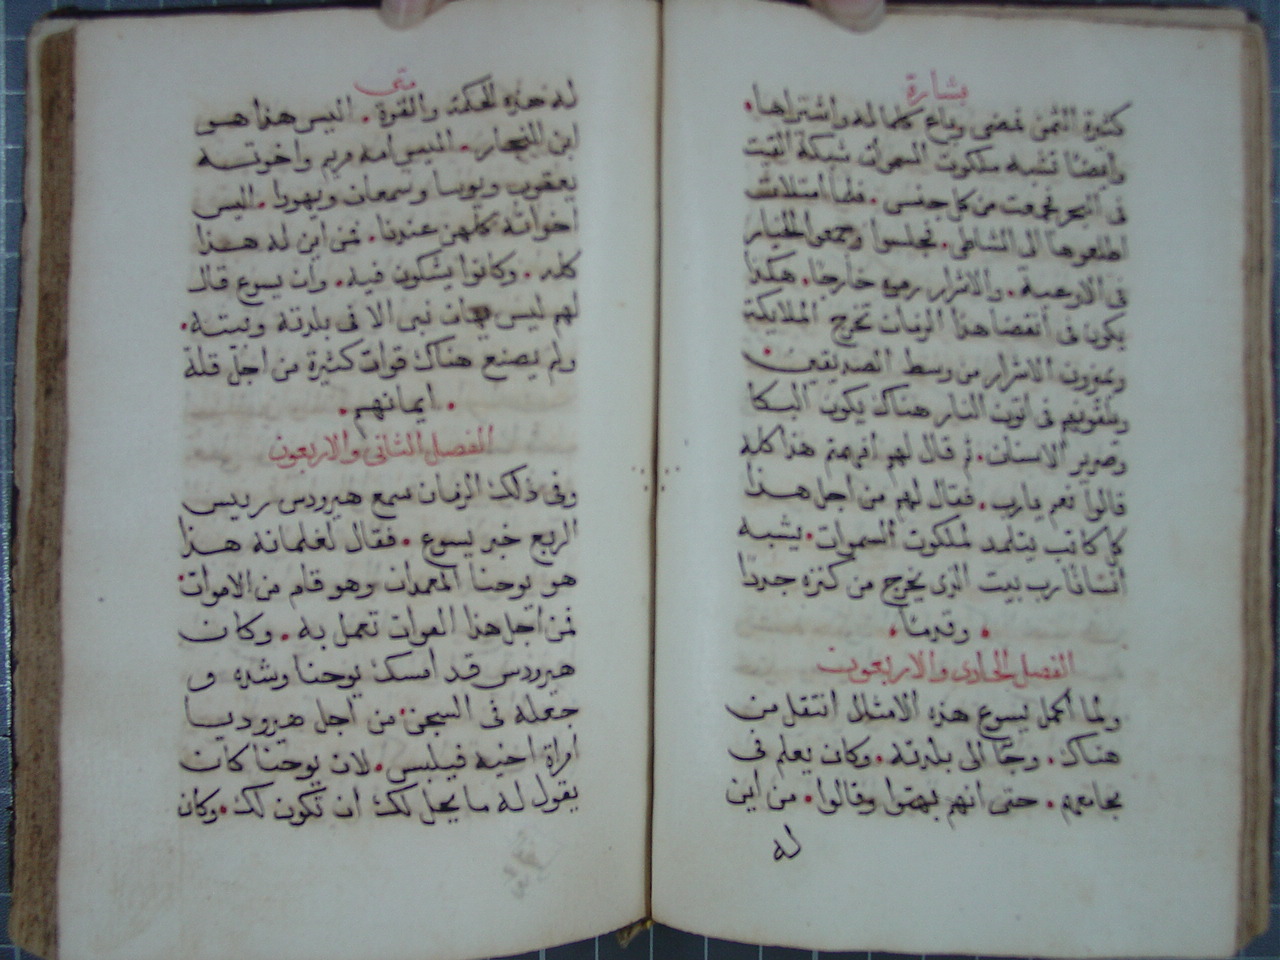 بشارة
كثيرة الثمن فمضى وباع كلما له واشتراها.
وايضا تشبه ملكوت السموات شبكة القيت
فى البحر فجمعت من كل جنس. فلما امتلات
اطلعوها الى الشاطى. فجلسوا وجمعوا الخيار
فى الاوعية. والاشرار رموه خارجا. هكذا
يكون فى انقضا هذا الزمان تخرج الملايكة
ويميزون الاشرار من وسط الصديقين.
ويلقونهم فى اتون النار هناك يكون البكا
وصرير الاسنان. ثم قال لهم افهمتم هذا كله
قالوا نعم يارب. فقال لهم من اجل هذا
كل كاتب يتلمد لملكوت السموات. يشبه
انسانا رب بيت الذى يخرج من كنزه جددا
. وقدما.
الفصل الحادى والاربعون
ولما اكمل يسوع هذه الامثال انتقل من
هناك. وجا الى بلدته. وكان يعلم فى
مجامعهم. حتى انهم بهتوا وقالوا. من اين
له
متى
له هذه الحكمة والقوة. اليس هذا هو
ابن النجار. اليس امه مريم واخوته
يعقوب ويوسا وسمعان ويهودا. اليس
اخواته كلهن عندنا. فمن اين له هذا
كله. وكانوا يشكون فيه. وان يسوع قال
لهم ليس يهان نبى الا فى بلدته وبيته.
ولم يصنع هناك قوات كثيرة من اجل قلة
. ايمانهم.
الفصل الثانى والاربعون
وفى ذلك الزمان سمع هيرودس رييس
الربع خبر يسوع. فقال لغلمانه هذا
هو يوحنا المعمدان وهو قام من الاموات.
فمن اجل هذا القوات تعمل به. وكان
هيرودس قد امسك يوحنا وشده و
جعله فى السجن. من اجل هيروديا
امراة اخيه فيلبس. لان يوحنا كان
يقول له ما يحل لك ان تكون لك. وكان